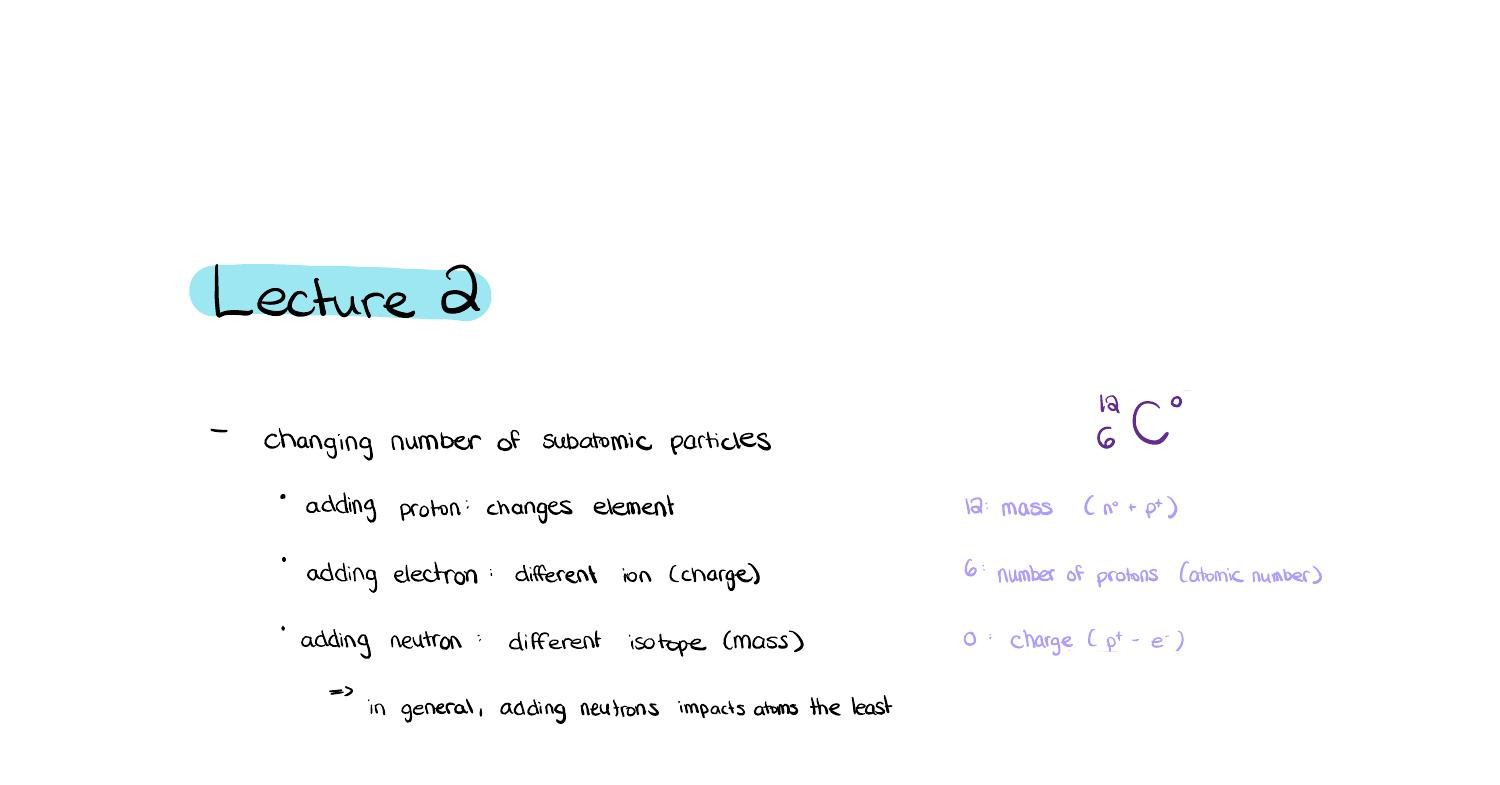 Lecture 2
12
6 C 0
- changing number of subatomic particles
• adding proton: changes element
12: mass (n° + p⁺)
• adding electron: different ion (charge)
6: number of protons (atomic number)
• adding neutron: different isotope (mass)
0: charge (p⁺ - e⁻)
=> in general, adding neutrons impacts atoms the least